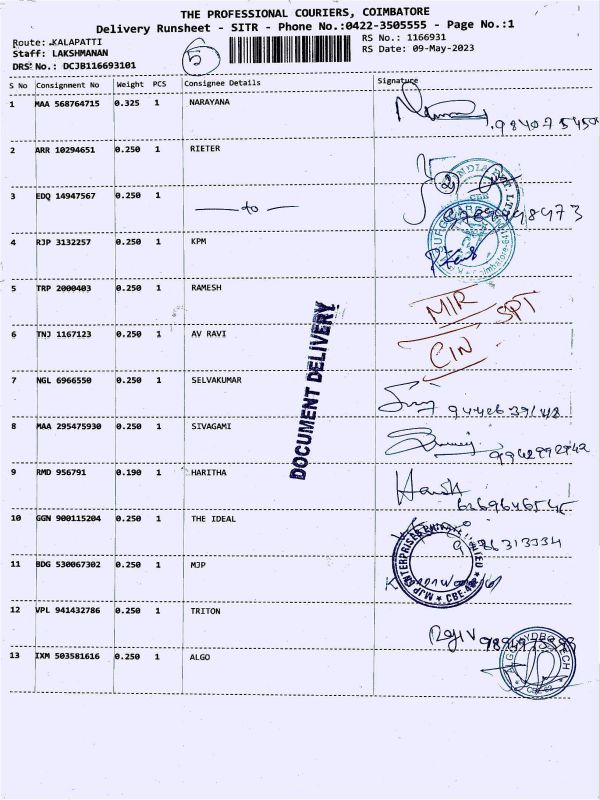 THE PROFESSIONAL COURIERS, COIMBATORE
Delivery Runsheet - SITR - Phone No.:0422-3505555 - Page No.:1
Route: KALAPATTI
Staff: LAKSHMANAN
DRS No.: DCJB116693101
5
RS No.: 1166931
RS Date: 09-May-2023
S No Consignment No Weight PCS Consignee Details Signature
1 MAA 568764715 0.325 1 NARAYANA
2 ARR 10294651 0.250 1 RIETER
3 EDQ 14947567 0.250 1 — to —
4 RJP 3132257 0.250 1 KPM
5 TRP 2000403 0.250 1 RAMESH MIR SPT
6 TNJ 1167123 0.250 1 AV RAVI CIN
7 NGL 6966550 0.250 1 SELVAKUMAR
8 MAA 295475930 0.250 1 SIVAGAMI
9 RMD 956791 0.190 1 HARITHA
10 GGN 900115204 0.250 1 THE IDEAL
11 BDG 530067302 0.250 1 MJP
12 VPL 941432786 0.250 1 TRITON
13 IXM 503581616 0.250 1 ALGO
DOCUMENT DELIVERY